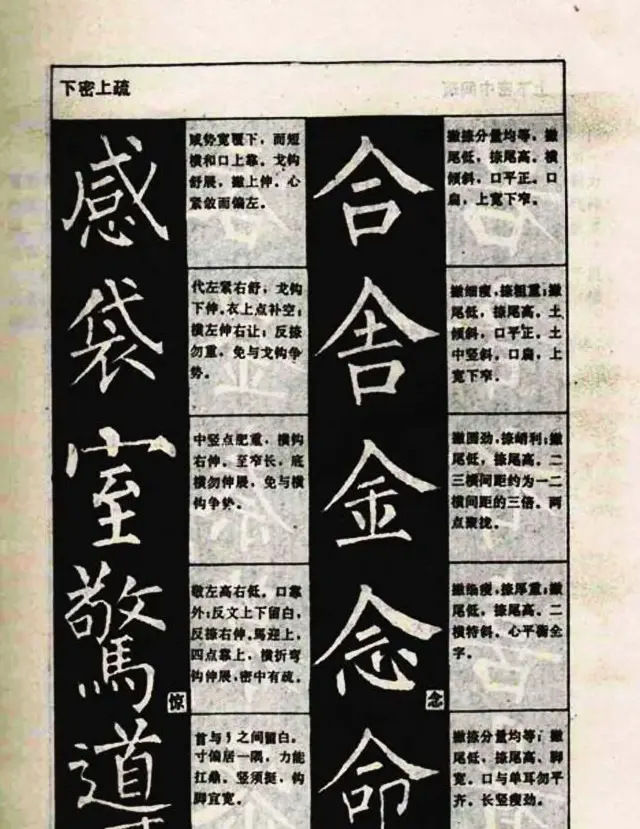 下密上疏
感
咸势宽覆下，而短
横和口上靠。戈钩
舒展，撇上伸。心
紧敛而偏左。
袋
代左紧右舒；戈钩
下伸。衣上点补空；
横左伸右让；反捺
勿重，免与戈钩争
势。
室
中竖点肥重，横钩
右伸。至窄长，底
横勿伸展，免与横
钩争势。
驚
敬左高右低。口靠
外；反文上下留白，
反捺右伸。馬迎上，
四点靠上，横折弯
钩伸展，密中有疏。
惊
道
首与辶之间留白。
寸偏居一隅，力能
扛鼎。竖须挺，钩
脚宜宽。
合
撇捺分量均等，撇
尾低，捺尾高。横
倾斜，口平正。口
扁，上宽下窄。
舍
撇细瘦，捺粗重；撇
尾低，捺尾高。土
倾斜，口平正。土
中竖斜。口扁，上
宽下窄。
金
撇圆劲，捺峭利；撇
尾低，捺尾高。二
三横间距约为一二
横间距的三倍。两
点聚拢。
念
撇细瘦，捺厚重；撇
尾低，捺尾高。二
横特斜。心平衡全
字。
念
命
撇捺分量均等；撇
尾低，捺尾高、脚
宽。口与单耳勿平
齐。长竖瘦劲。